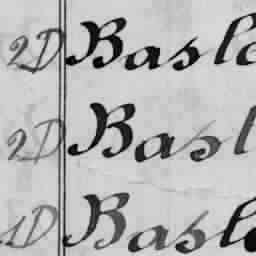 2D Basle
2D Basl
1D Basle